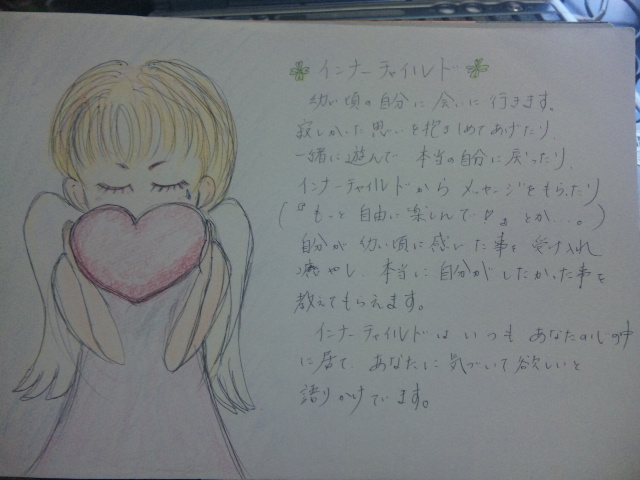 インナーチャイルド
幼い頃の自分に会いに行きます。
寂しかった思いを抱きしめてあげたり
一緒に遊んで 本当の自分に戻ったり、
インナーチャイルドからメッセージをもらったり
(『もっと自由に楽しんで♡』とか…。)
自分が幼い頃に感じた事を受け入れ
癒やし 本当に自分がしたかった事を
教えてもらえます。
インナーチャイルドはいつもあなたの心の中
に居て、あなたに気づいて欲しいと
語りかけています。